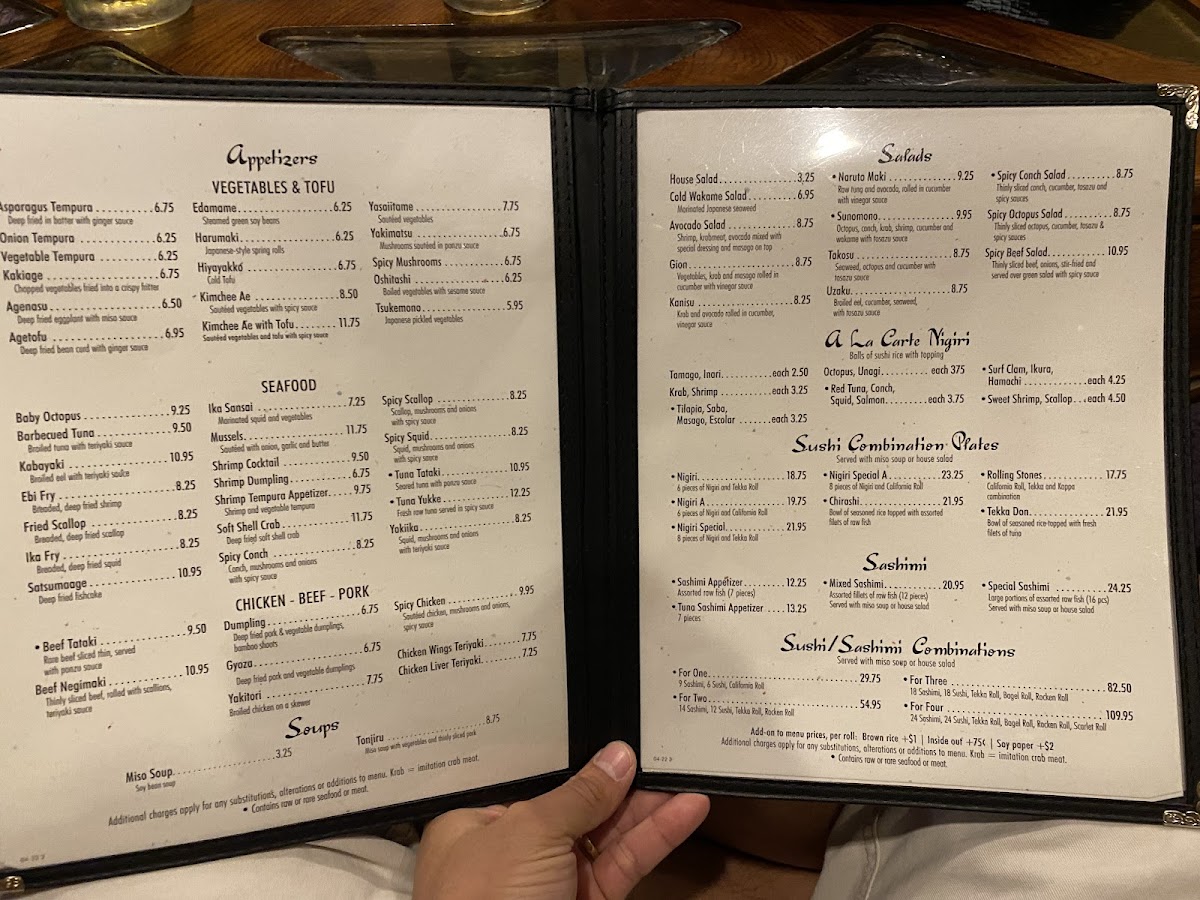 Appetizers
VEGETABLES & TOFU
Asparagus Tempura 6.75
Deep fried in batter with ginger sauce
Onion Tempura 6.25
Vegetable Tempura 6.25
Kakiage 6.75
Chopped vegetables fried into a crispy fritter
Agenasu 6.50
Deep fried eggplant with miso sauce
Agetofu 6.95
Deep fried bean curd with ginger sauce
Edamame 6.25
Steamed green soy beans
Harumaki 6.25
Japanese-style spring rolls
Hiyayakko 6.75
Cold Tofu
Kimchee Ae 8.50
Sautéed vegetables with spicy sauce
Kimchee Ae with Tofu 11.75
Sautéed vegetables and tofu with spicy sauce
Yasaiitame 7.75
Sautéed vegetables
Yakimatsu 6.75
Mushrooms sautéed in ponzu sauce
Spicy Mushrooms 6.75
Oshitashi 6.25
Boiled vegetables with sesame sauce
Tsukemono 5.95
Japanese pickled vegetables
SEAFOOD
Baby Octopus 9.25
Barbecued Tuna 9.50
Broiled tuna with teriyaki sauce
Kabayaki 10.95
Broiled eel with teriyaki sauce
Ebi Fry 8.25
Breaded, deep fried shrimp
Fried Scallop 8.25
Breaded, deep fried scallop
Ika Fry 8.25
Breaded, deep fried squid
Satsumaage 10.95
Deep fried fishcake
Ika Sansai 7.25
Marinated squid and vegetables
Mussels 11.75
Sautéed with onion, garlic and butter
Shrimp Cocktail 9.50
Shrimp Dumpling 6.75
Shrimp Tempura Appetizer 9.75
Shrimp and vegetable tempura
Soft Shell Crab 11.75
Deep fried soft shell crab
Spicy Conch 8.25
Conch, mushrooms and onions
with spicy sauce
Spicy Scallop 8.25
Scallop, mushrooms and onions
with spicy sauce
Spicy Squid 8.25
Squid, mushrooms and onions
with spicy sauce
• Tuna Tataki 10.95
Seared tuna with ponzu sauce
• Tuna Yukke 12.25
Fresh raw tuna served in spicy sauce
Yakiika 8.25
Squid, mushrooms and onions
with teriyaki sauce
CHICKEN - BEEF - PORK
• Beef Tataki 9.50
Rare beef sliced thin, served
with ponzu sauce
Beef Negimaki 10.95
Thinly sliced beef, rolled with scallions,
teriyaki sauce
Dumpling 6.75
Deep fried pork & vegetable dumplings,
bamboo shoots
Gyoza 6.75
Deep fried pork and vegetable dumplings
Yakitori 7.75
Broiled chicken on a skewer
Spicy Chicken 9.95
Sautéed chicken, mushrooms and onions,
spicy sauce
Chicken Wings Teriyaki 7.75
Chicken Liver Teriyaki 7.25
Soups
Miso Soup 3.25
Soy bean soup
Tonjiru 8.75
Miso soup with vegetables and thinly sliced pork
Additional charges apply for any substitutions, alterations or additions to menu. Krab = imitation crab meat.
• Contains raw or rare seafood or meat.
04-22 2
Salads
House Salad 3.25
Cold Wakame Salad 6.95
Marinated Japanese seaweed
Avocado Salad 8.75
Shrimp, krabmeat, avocado mixed with
special dressing and masago on top
Gion 8.75
Vegetables, krab and masago rolled in
cucumber with vinegar sauce
Kanisu 8.25
Krab and avocado rolled in cucumber,
vinegar sauce
• Naruto Maki 9.25
Raw tuna and avocado, rolled in cucumber
with vinegar sauce
• Sunomono 9.95
Octopus, conch, krab, shrimp, cucumber and
wakame with tosazu sauce
Takosu 8.75
Seaweed, octopus and cucumber with
tosazu sauce
Uzaku 8.75
Broiled eel, cucumber, seaweed,
with tosazu sauce
• Spicy Conch Salad 8.75
Thinly sliced conch, cucumber, tosazu and
spicy sauces
Spicy Octopus Salad 8.75
Thinly sliced octopus, cucumber, tosazu &
spicy sauces
Spicy Beef Salad 10.95
Thinly sliced beef, onions, stir-fried and
served over green salad with spicy sauce
A La Carte Nigiri
Balls of sushi rice with topping
Tamago, Inari each 2.50
Krab, Shrimp each 3.25
• Tilapia, Saba,
Masago, Escolar each 3.25
Octopus, Unagi each 375
• Red Tuna, Conch,
Squid, Salmon each 3.75
• Surf Clam, Ikura,
Hamachi each 4.25
• Sweet Shrimp, Scallop each 4.50
Sushi Combination Plates
Served with miso soup or house salad
• Nigiri 18.75
6 pieces of Nigiri and Tekka Roll
• Nigiri A 19.75
6 pieces of Nigiri and California Roll
• Nigiri Special 21.95
8 pieces of Nigiri and Tekka Roll
• Nigiri Special A 23.25
8 pieces of Nigiri and California Roll
• Chirashi 21.95
Bowl of seasoned rice topped with assorted
filets of raw fish
• Rolling Stones 17.75
California Roll, Tekka and Kappa
combination
• Tekka Don 21.95
Bowl of seasoned rice topped with fresh
filets of tuna
Sashimi
• Sashimi Appetizer 12.25
Assorted raw fish (7 pieces)
• Tuna Sashimi Appetizer 13.25
7 pieces
• Mixed Sashimi 20.95
Assorted fillets of raw fish (12 pieces)
Served with miso soup or house salad
• Special Sashimi 24.25
Large portions of assorted raw fish (16 pcs)
Served with miso soup or house salad
Sushi/Sashimi Combinations
Served with miso soup or house salad
• For One 29.75
9 Sashimi, 6 Sushi, California Roll
• For Two 54.95
14 Sashimi, 12 Sushi, Tekka Roll, Rocken Roll
• For Three 82.50
18 Sashimi, 18 Sushi, Tekka Roll, Bagel Roll, Rocken Roll
• For Four 109.95
24 Sashimi, 24 Sushi, Tekka Roll, Bagel Roll, Rocken Roll, Scarlet Roll
Add-on to menu prices, per roll: Brown rice +$1 | Inside out +75¢ | Soy paper +$2
Additional charges apply for any substitutions, alterations or additions to menu. Krab = imitation crab meat.
• Contains raw or rare seafood or meat.
04-22 2